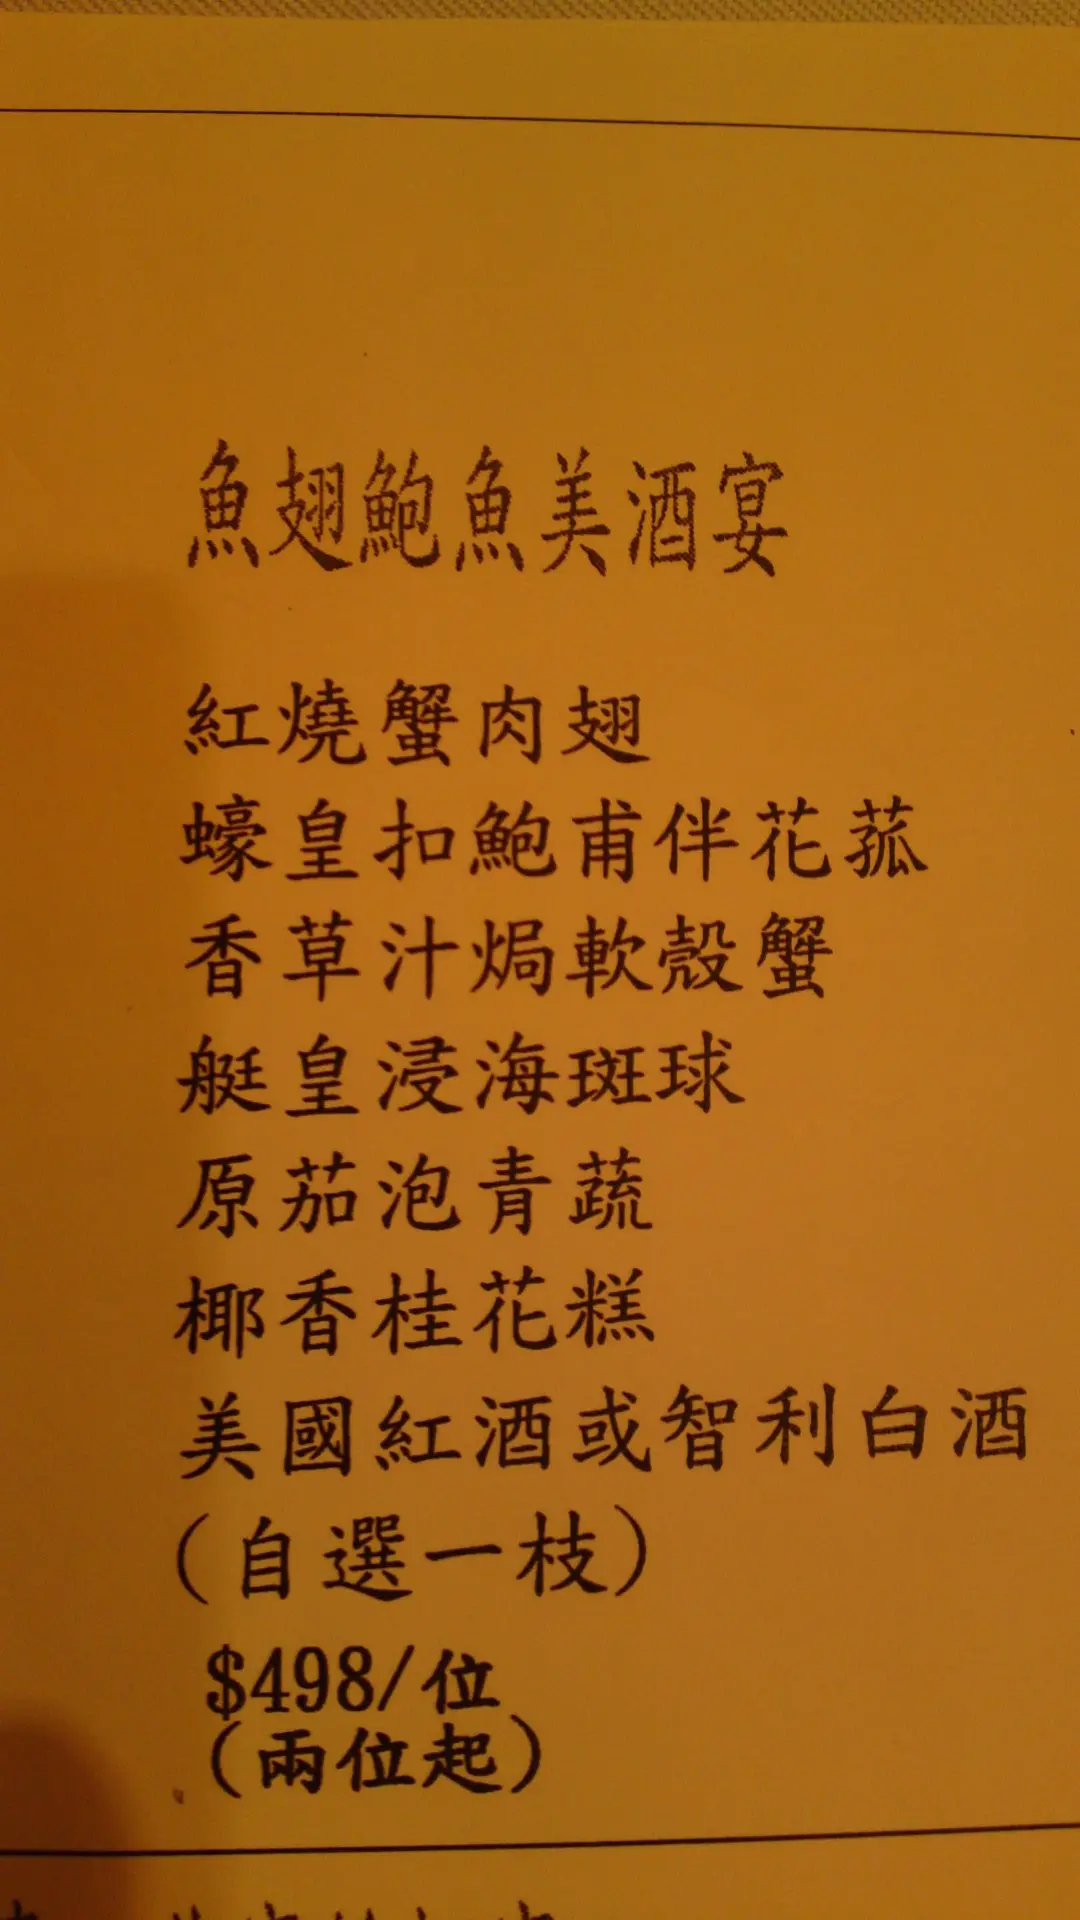 魚翅鮑魚美酒宴
紅燒蟹肉翅
蠔皇扣鮑甫伴花菰
香草汁焗軟殼蟹
艇皇浸海斑球
原茄泡青蔬
椰香桂花糕
美國紅酒或智利白酒
(自選一枝)
$498/位
(兩位起)